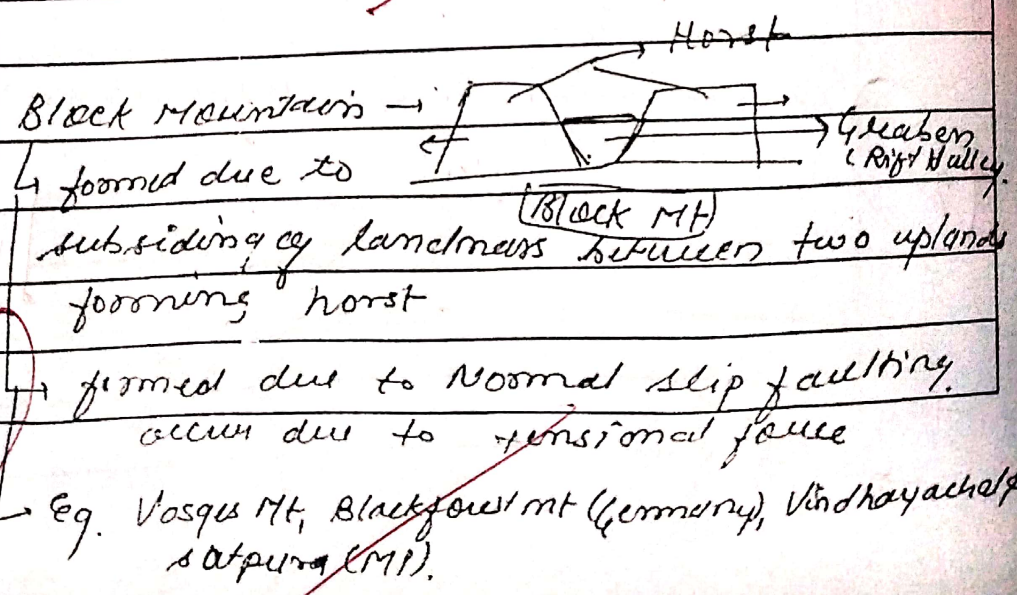 Horst
Block Mountain →
Graben
(Rift Valley)
↳ formed due to
(Block Mt)
subsiding of landmass between two uplands
forming horst
→ formed due to Normal slip faulting
occur due to tensional force
→ Eg. Vosges Mt, Blackforest mt (Germany), Vindhayachal &
satpura (MP).